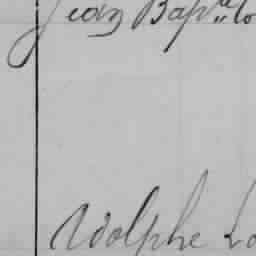 Jean Bapte
Adolphe Lo